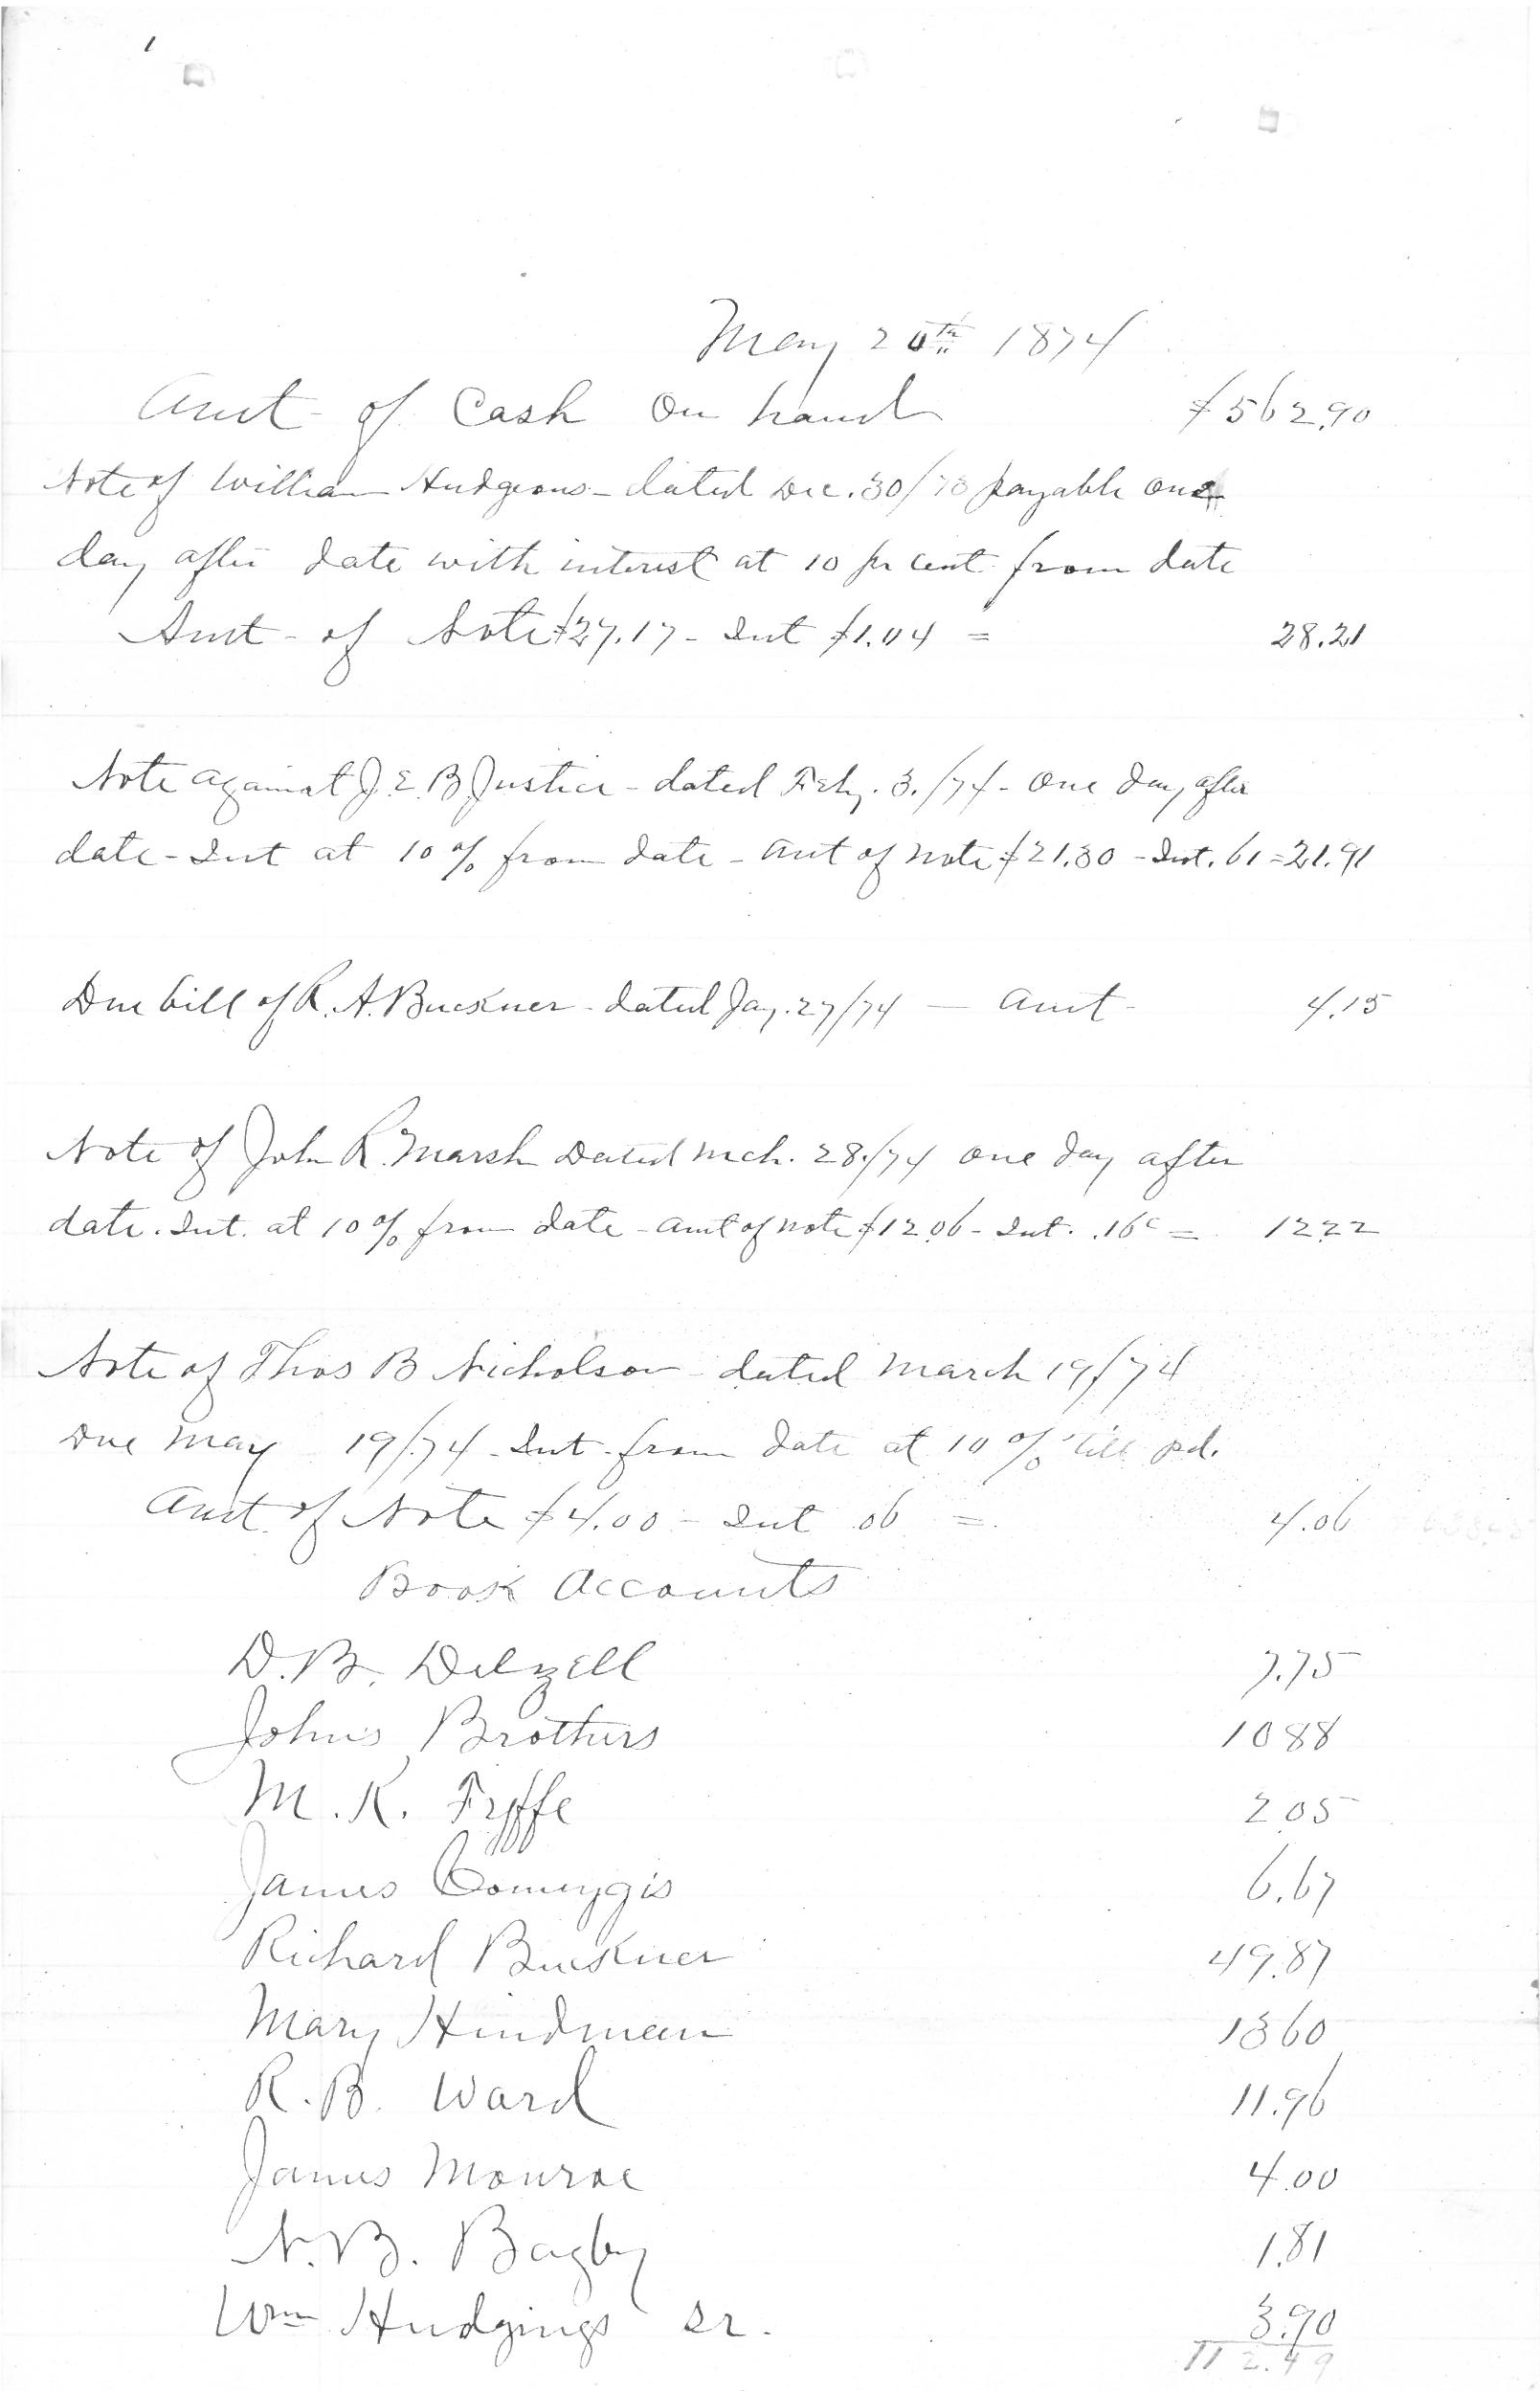 1
May 20th 1874
Amt - of Cash on hand $562.90
Note of William Hudgeons - dated Dec. 30/73 payable one
day after date with interest at 10 pr cent from date
Amt - of Note $27.17 - Int $1.04 = 28.21
Note against J. E. B Justice - dated Feby. 3./74 - One day after
date - Int at 10 % from date - Amt of note $21.30 - Int. 61 = 21.91
Due bill of R. A. Buckner - dated Jay. 27/74 — Amt - 4.15
Note of John R. Marsh Dated Mch. 28./74 One day after
date. Int. at 10 % from date - Amt of note $12.06 - Int. .16c = 12.22
Note of Thos B Nicholson - dated March 19/74
Due May 19/74 - Int - from date at 10 % till pd.
Amt of Note $4.00 - Int 06 = 4.06
Book Accounts
D. B. Delzell 7.75
Johns Brothers 10 88
M. K. Fyffe 2 05
James Comeygis 6.67
Richard Buckner 49.87
Mary Hindman 13 60
R. B. Ward 11.96
James Monroe 4.00
N. B. Bagby 1.81
Wm Hudgings Sr. 3.90
112.49